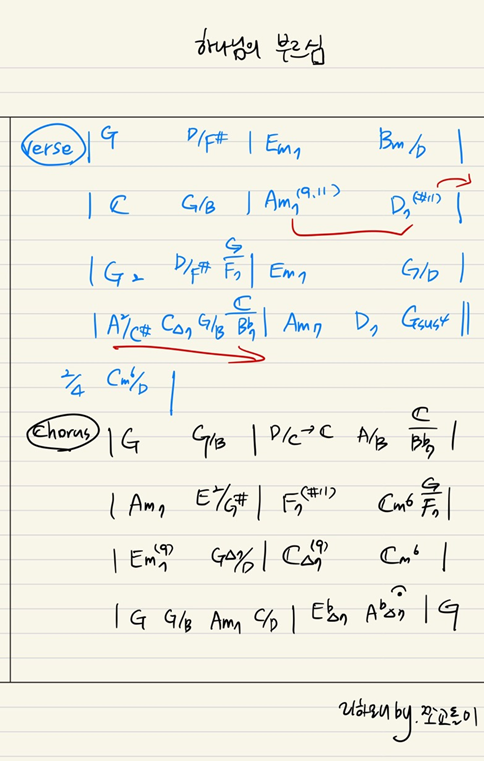 하나님의 부르심
Verse | G D/F# | Em7 Bm/D |
| C G/B | Am7(9,11) D7(#11) |
| G2 D/F# G/F7 | Em7 G/D |
| A2/C# C△7 G/B C/Bb7 | Am7 D7 Gsus4 ||
2/4 Cm6/D |
Chorus | G G/B | D/C→C A/B C/Bb7 |
| Am7 E2/G# | F7(#11) Cm6 G/F7 |
| Em7(9) G△7/D | C△7(9) Cm6 |
| G G/B Am7 C/D | Eb△7 Ab△7 | G
리하모니 by.